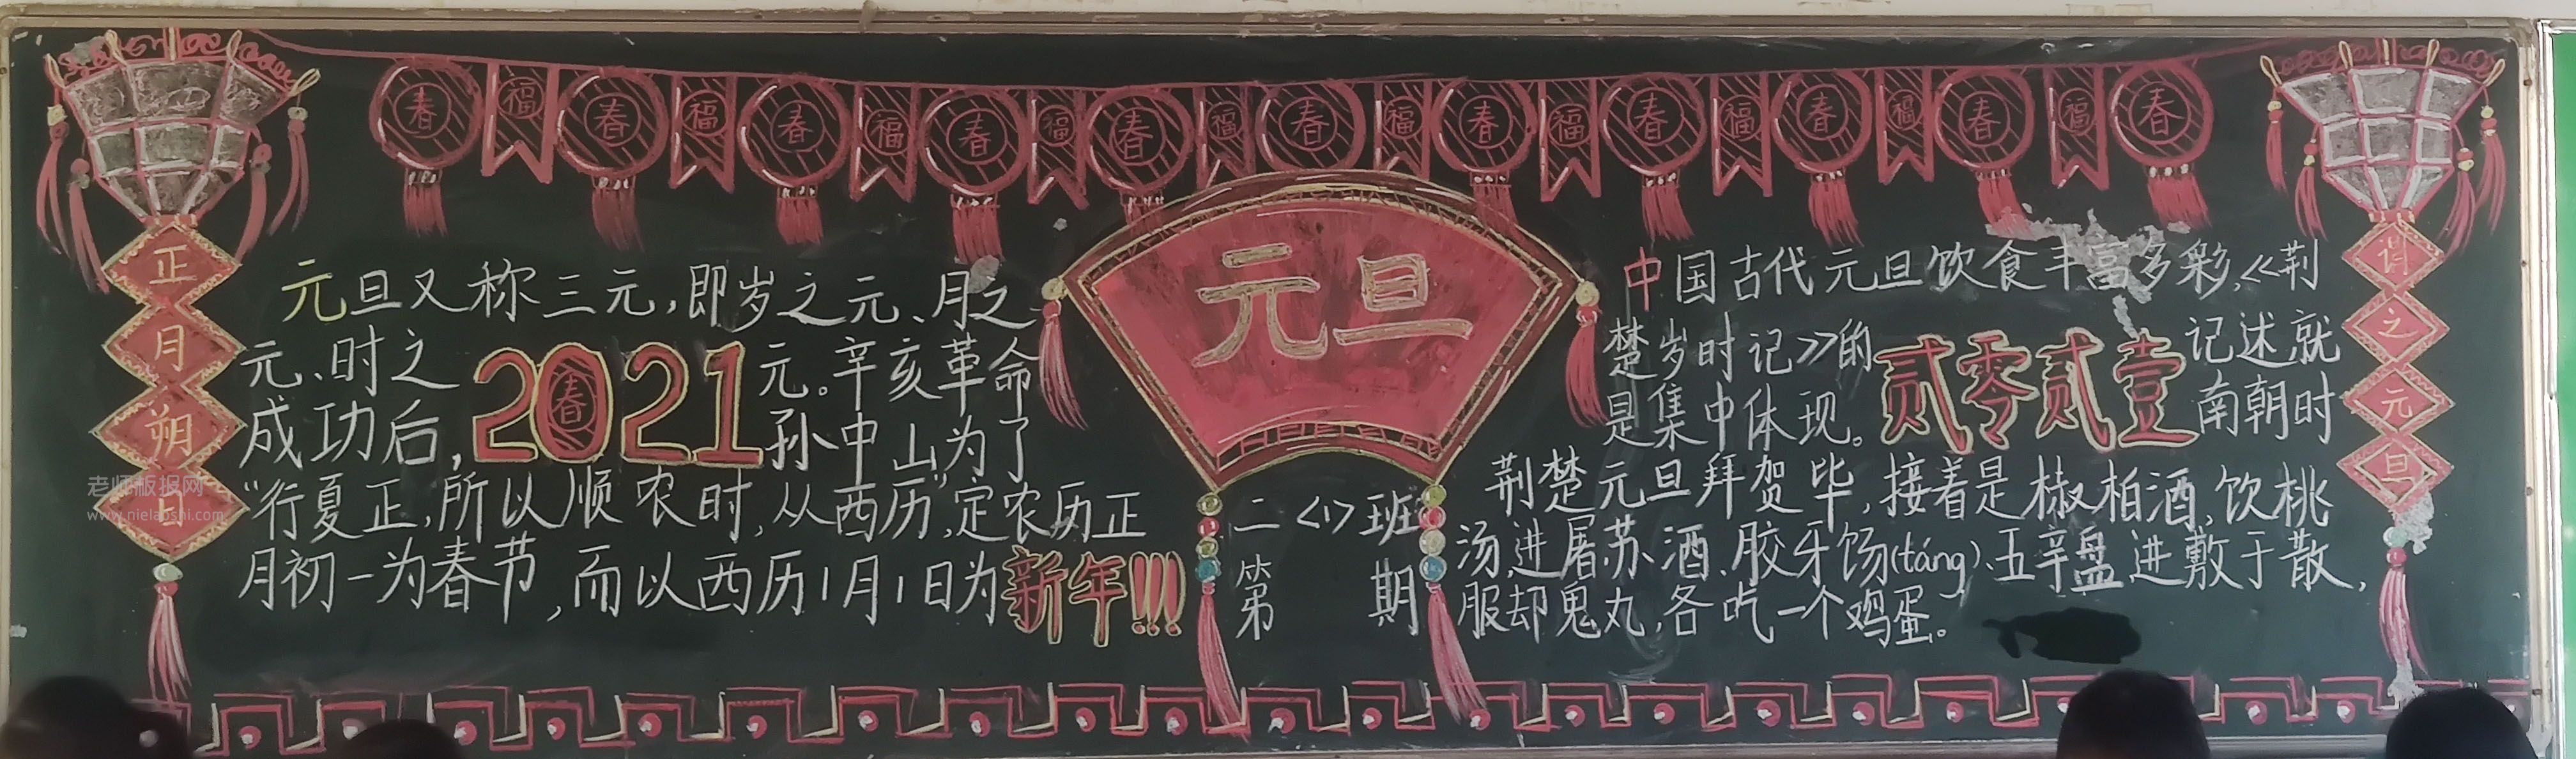 春 福 春 福 春 福 春 福 春 福 春 福 春 福 春 福 春 福 春 福 春
正月朔日
元旦
谓之元旦
元旦又称三元,即岁之元、月之
元、时之 元。辛亥革命
2021
春
成功后, 孙中山为了
“行夏正,所以顺农时,从西历”,定农历正
月初一为春节,而以西历1月1日为
新年!!!
二<1>班
第 期
中国古代元旦饮食丰富多彩,《荆
楚岁时记》的 记述,就
贰零贰壹
是集中体现。 南朝时
荆楚元旦拜贺毕,接着是椒柏酒,饮桃
汤,进屠苏酒、胶牙饧(táng)、五辛盘,进敷于散,
服却鬼丸,各吃一个鸡蛋。
老师板报网
www.nielaoshi.com